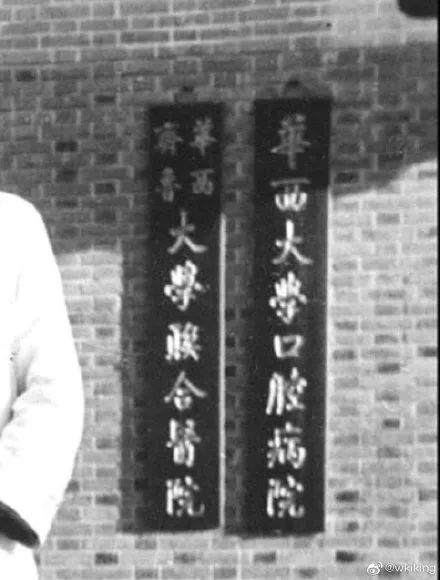 華西大學口腔病院
華西
齊魯
大學聯合醫院
@wkiking